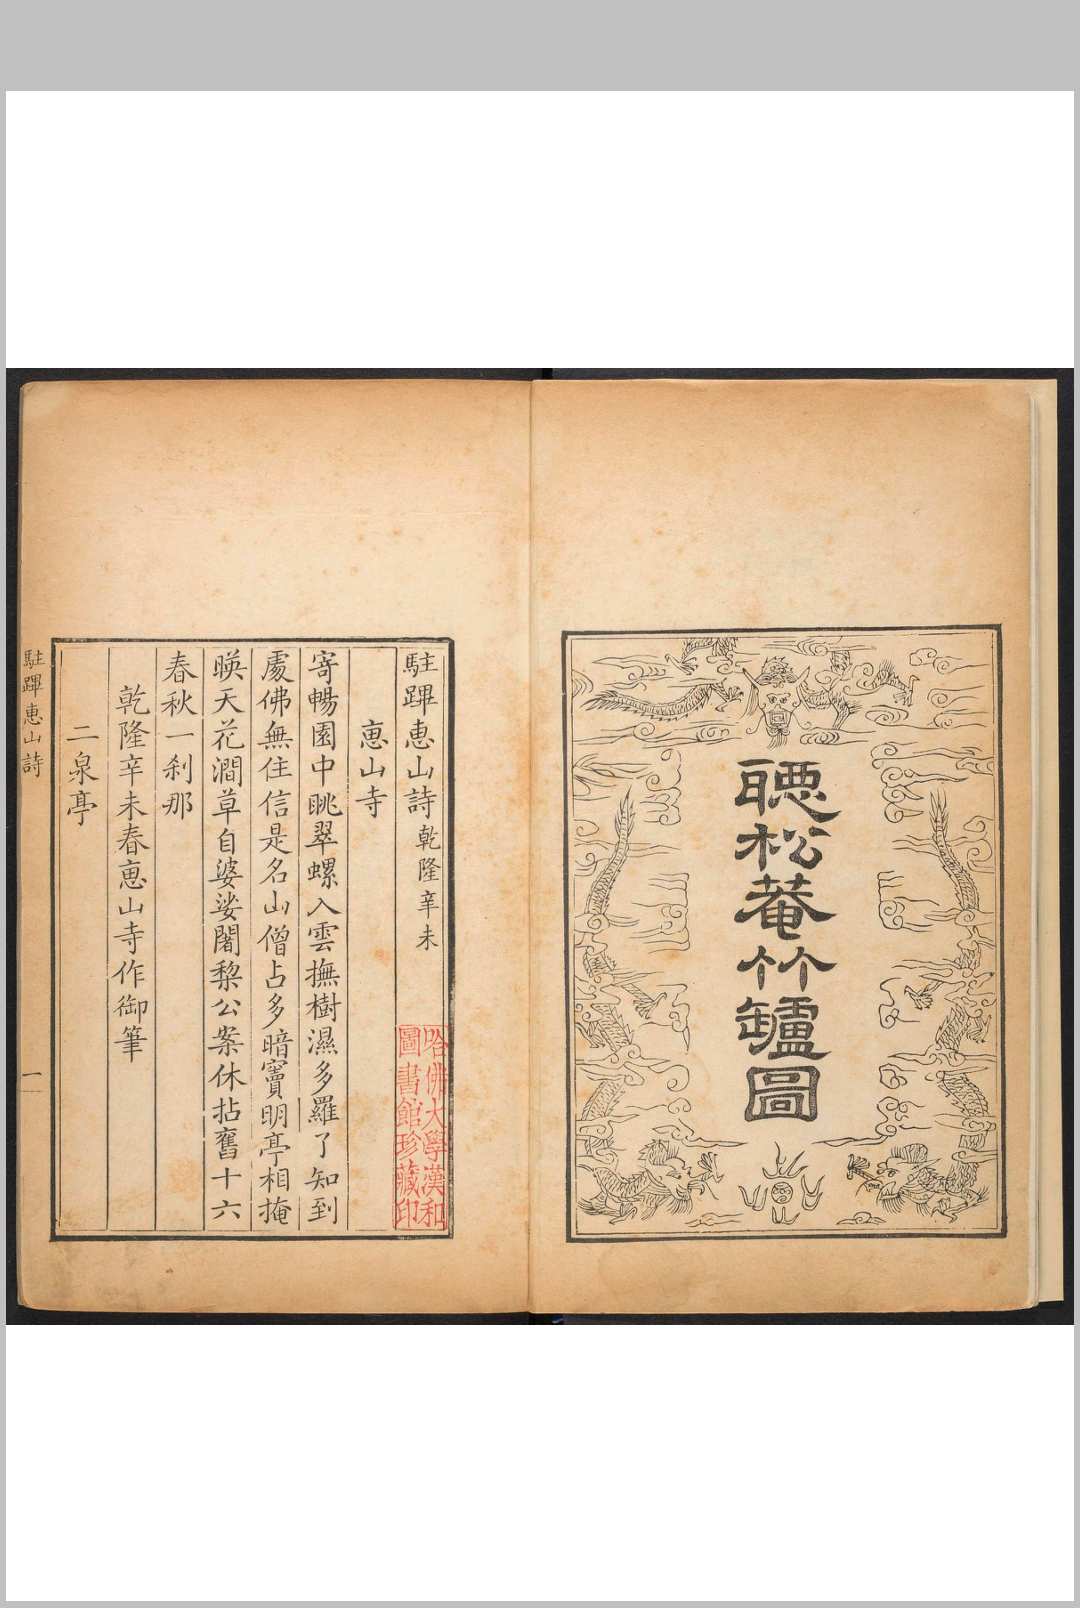 聽松菴竹罏圖
駐蹕惠山詩乾隆辛未
惠山寺
寄暢園中眺翠螺入雲撫樹濕多羅了知到
處佛無住信是名山僧占多暗竇明亭相掩
暎天花澗草自婆娑闍棃公案休拈舊十六
春秋一剎那
乾隆辛未春惠山寺作御筆
二泉亭
駐蹕惠山詩
一
哈佛大學漢和
圖書館珍藏印